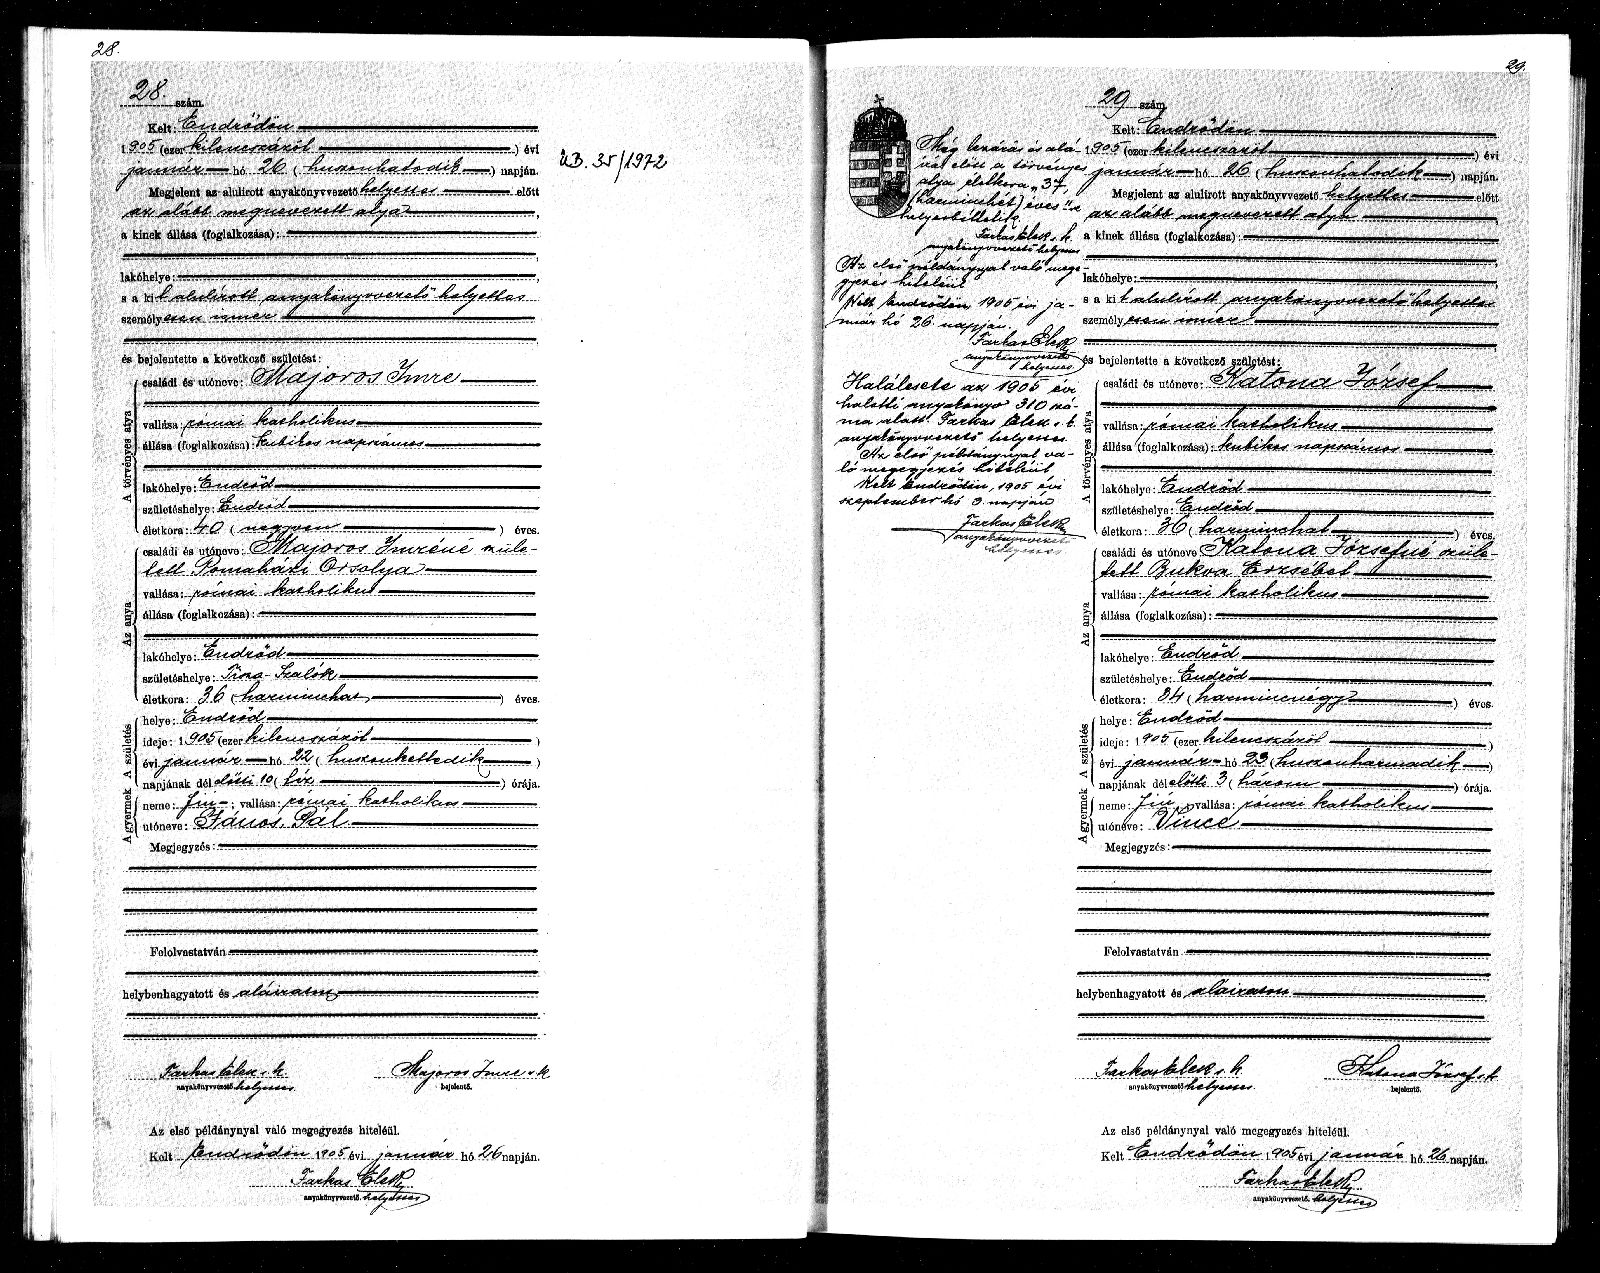 28.
28. szám.
Kelt: Endrődön
1905 (ezer kilencszázöt ) évi
január hó 26 ( huszonhatodik ) napján.
Megjelent az alulirott anyakönyvvezető helyettes előtt
az alább megnevezett atya ,
a kinek állása (foglalkozása):
,
lakóhelye:
s a kit alulírott anyakönyvvezető helyettes
személyesen ismer
,
és bejelentette a következő születést:
A törvényes atya
családi és utóneve: Majoros Imre
vallása: római katholikus
állása (foglalkozása): kubikos napszámos
lakóhelye: Endrőd
születéshelye: Endrőd
életkora: 40 ( negyven ) éves.
Az anya
családi és utóneve: Majoros Imréné szüle-
tett Pomaházi Orsolya
vallása: római katholikus
állása (foglalkozása):
lakóhelye: Endrőd
születéshelye: Tisza-Szalók
életkora: 36 ( harminchat ) éves.
A gyermek A születés
helye: Endrőd
ideje: 1905 (ezer kilencszázöt )
évi január hó 22 ( huszonkettedik )
napjának dél előtti 10 ( tíz ) órája.
neme: fiú ; vallása: római katholikus
utóneve: János, Pál
Megjegyzés:
Felolvastatván
helybenhagyatott és aláiratott
Farkas Elek s. k.
anyakönyvvezető. helyettes
Majoros Imre s. k.
bejelentő.
Az első példánynyal való megegyezés hiteléül.
Kelt Endrődön 1905 évi január hó 26 napján.
Farkas Elek
anyakönyvvezető. helyettes
UB. 35/1972
29.
Még lezárás és alá-
írás előtt a törvényes
atya életkora "37,
(harminchét) éves"re
helyesbíttetik.
Farkas Elek s. k.
anyakönyvvezető helyettes
Az első példánynyal való mege-
gyezés hiteléül
Kelt Endrődön 1905 évi ja-
nuár hó 26 napján.
Farkas Elek
anyakönyvvezető
helyettes
Halálesete az 1905 évi
halotti anyakönyv 310 szá-
ma alatt. Farkas Elek s. k.
anyakönyvvezető helyettes
Az első példánynyal va-
ló megegyezés hiteléül
Kelt Endrődön, 1905 évi
szeptember hó 3 napján
Farkas Elek
anyakönyvvezető
helyettes
29 szám
Kelt: Endrődön
1905 (ezer kilencszázöt ) évi
január hó 26 ( huszonhatodik ) napján.
Megjelent az alulirott anyakönyvvezető helyettes előtt
az alább megnevezett atya ,
a kinek állása (foglalkozása):
,
lakóhelye:
s a kit alulírott anyakönyvvezető helyettes
személyesen ismer
,
és bejelentette a következő születést:
A törvényes atya
családi és utóneve: Katona József
vallása: római katholikus
állása (foglalkozása): kubikos napszámos
lakóhelye: Endrőd
születéshelye: Endrőd
életkora: 36 ( harminchat ) éves.
Az anya
családi és utóneve: Katona Józsefné szüle-
tett Bukva Erzsébet
vallása: római katholikus
állása (foglalkozása):
lakóhelye: Endrőd
születéshelye: Endrőd
életkora: 34 ( harmincnégy ) éves.
A gyermek A születés
helye: Endrőd
ideje: 1905 (ezer kilencszázöt )
évi január hó 23 ( huszonharmadik )
napjának dél előtti 3 ( három ) órája.
neme: fiú ; vallása: római katholikus
utóneve: Vince
Megjegyzés:
Felolvastatván
helybenhagyatott és aláiratott
Farkas Elek s. k.
anyakönyvvezető. helyettes
Katona József s. k.
bejelentő.
Az első példánynyal való megegyezés hiteléül.
Kelt Endrődön 1905 évi január hó 26 napján.
Farkas Elek
anyakönyvvezető. helyettes